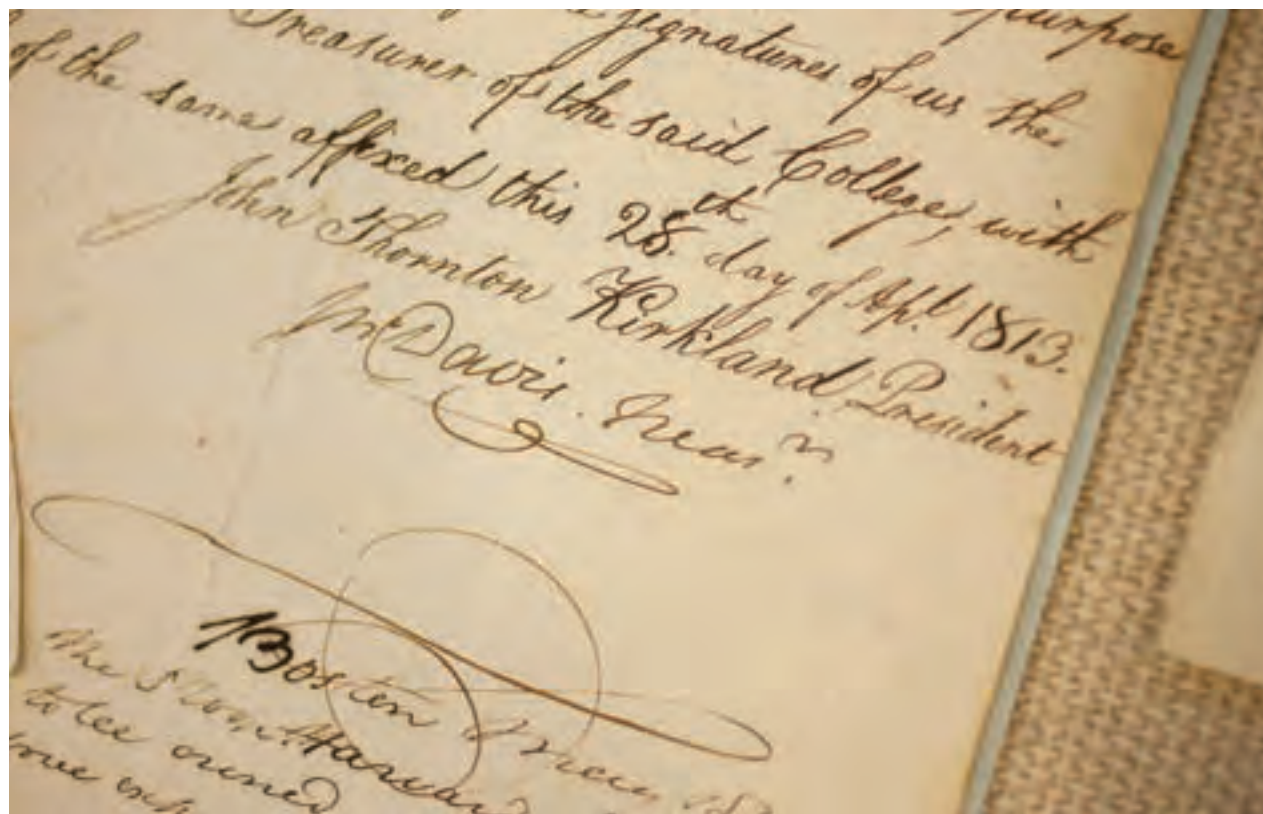 purpose
signatures of us the
Treasurer of the said College, with
of the same affixed this 28th. day of Apl. 1813.
John Thornton Kirkland President
Davis. Treasr.
Boston
The Harvard
to be owned